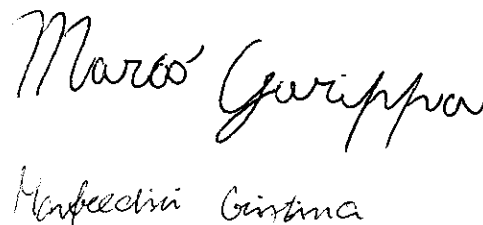 Marco Garippa
Manfredini Cristina